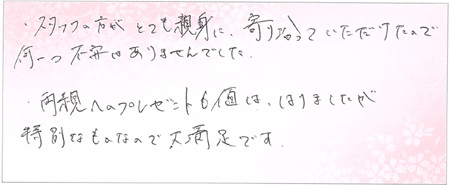 ・スタッフの方がとても親身に、寄り添っていただけたので
何一つ不安はありませんでした。
・両親へのプレゼント6値は、はりましたが
特別なものなので大満足です。